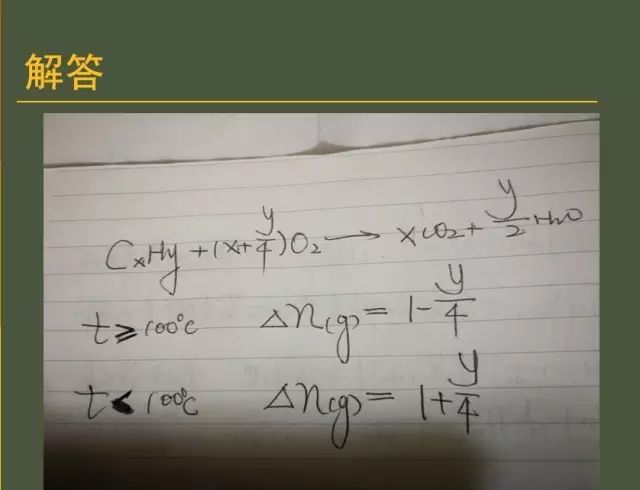 解答
CxHy + (x+y/4)O2 → xCO2 + y/2 H2O
t ≥ 100℃ Δn(g) = 1 - y/4
t < 100℃ Δn(g) = 1 + y/4